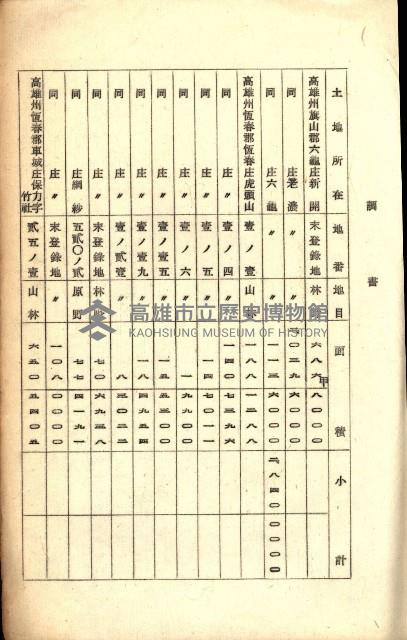 調書
土地所在 地番 地目 面積 小計
高雄州旗山郡六龜庄新開 末登錄地 林野 甲 六八六八〇〇〇
同 庄荖濃 〃 〃 〇二九六〇〇〇
同 庄六龜 〃 〃 六〇〇〇 二、八四〇〇〇〇〇
高雄州恆春郡恆春庄虎頭山 壹ノ壹 山林 一八八一二八八
同 庄〃 壹ノ四 〃 一四〇七三九六
同 庄〃 壹ノ五 〃 一四七〇一一
同 庄〃 壹ノ六 〃 一九九〇〇
同 庄〃 壹ノ壹五 〃
同 庄〃 壹ノ壹九 〃 一八四九五四
同 庄〃 壹ノ貳壹 〃 八三〇二二
同 庄〃 末登錄地 林野 七〇六九三八
同 庄網紗 五貳〇ノ貳 原野 七七四一九一
同 庄〃 末登錄地 〃 一〇八〇〇〇〇
高雄州恆春郡車城庄保力字竹社 貳五ノ壹 山林 六五〇五四〇五
高雄市立歷史博物館
KAOHSIUNG MUSEUM OF HISTORY